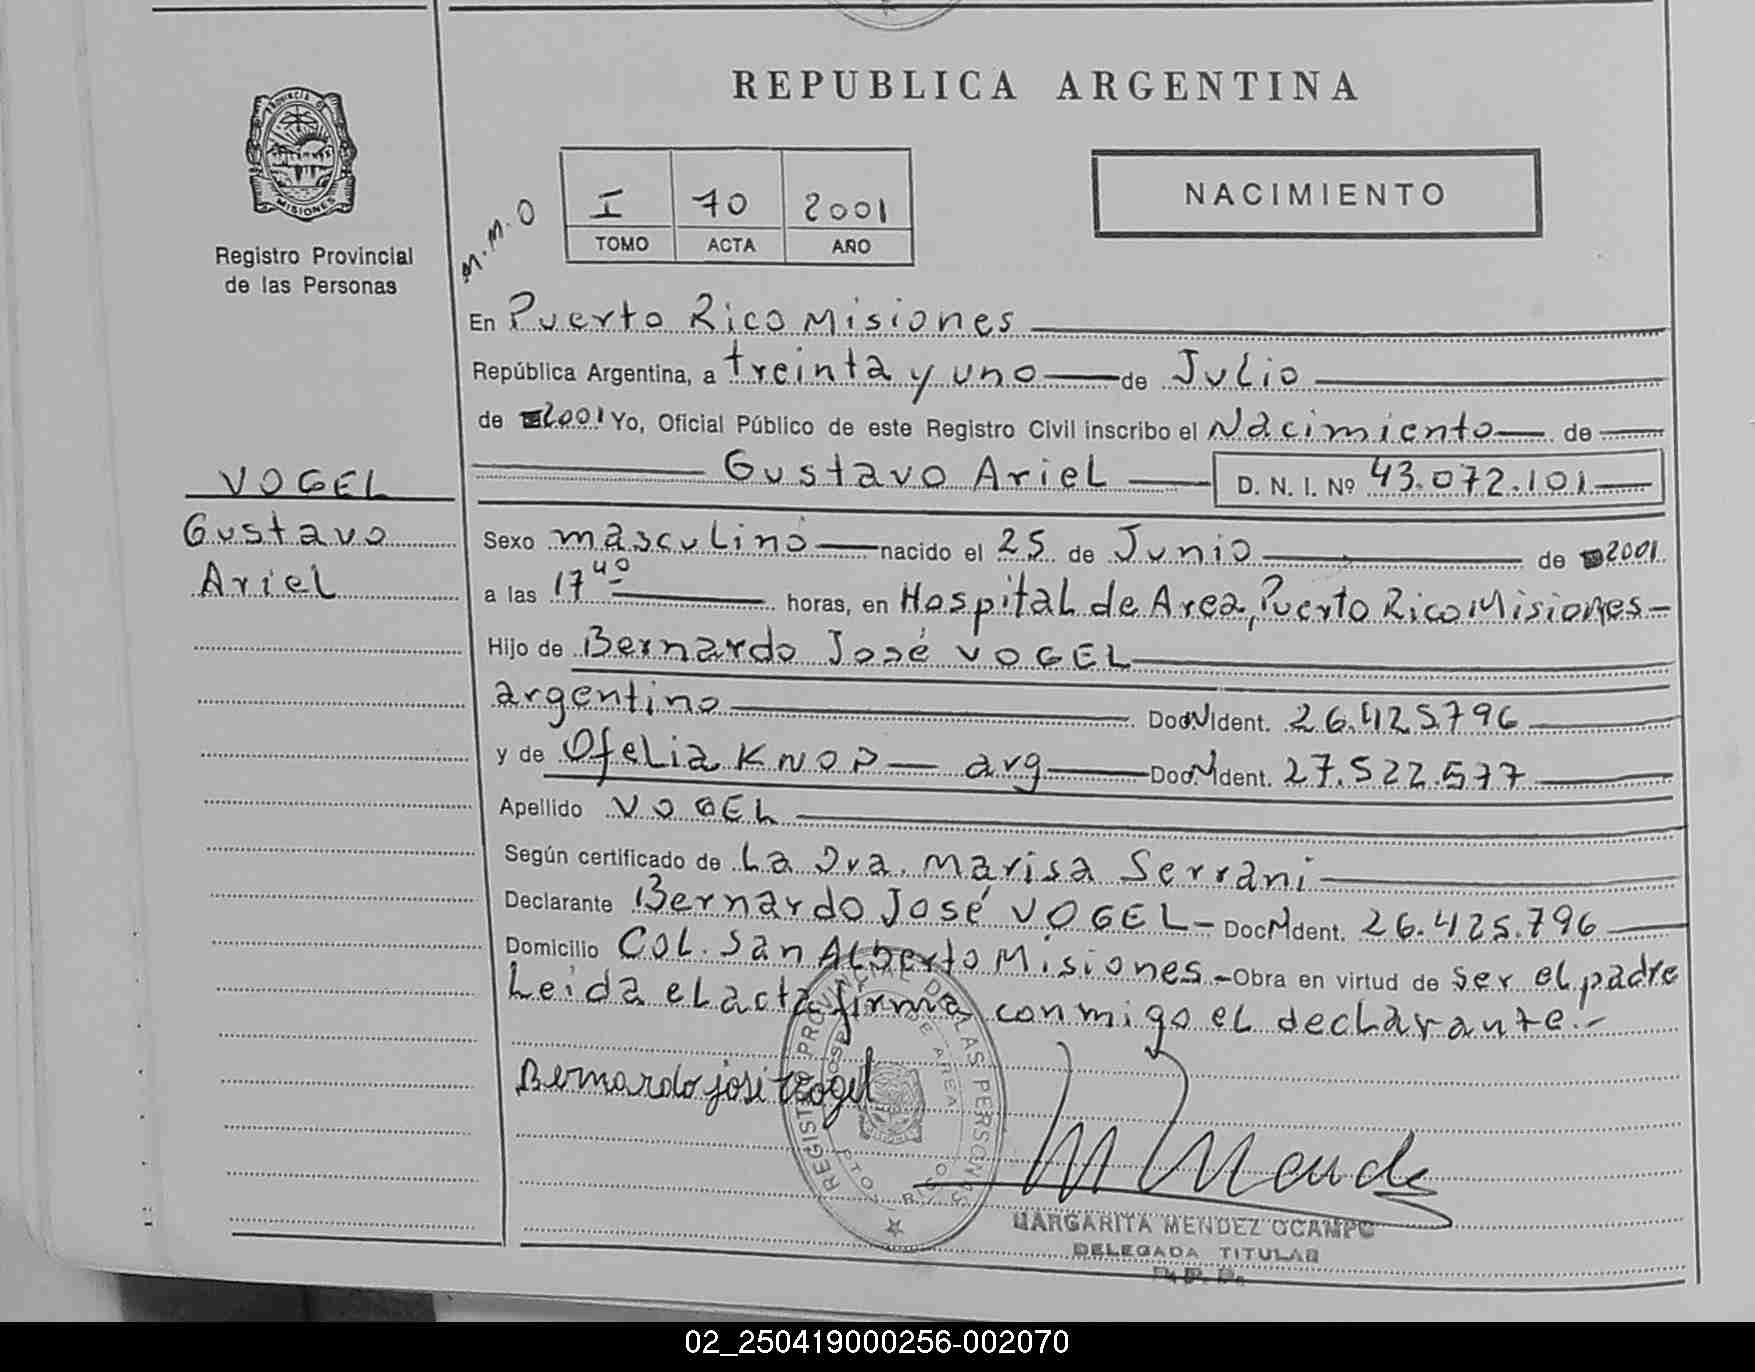 REPUBLICA ARGENTINA
PROVINCIA DE
MISIONES
Registro Provincial
de las Personas
M.M.O
I 70 2001
TOMO ACTA AÑO
NACIMIENTO
En Puerto Rico Misiones
República Argentina, a treinta y uno de Julio
de 2001 Yo, Oficial Público de este Registro Civil inscribo el Nacimiento de
Gustavo Ariel D. N. I. Nº 43.072.101
VOGEL
Gustavo
Ariel
Sexo masculino nacido el 25 de Junio de 2001
a las 17 40 horas, en Hospital de Area, Puerto Rico Misiones
Hijo de Bernardo José VOGEL
argentino Doc Ident. 26.425796
y de Ofelia KNOP arg Doc Ident. 27.522.577
Apellido VOGEL
Según certificado de La Dra. Marisa Serrani
Declarante Bernardo José VOGEL Doc Ident. 26.425.796
Domicilio COL. San Alberto Misiones Obra en virtud de ser el padre
Leida el acta firma conmigo el declarante.-
Bernardo josé Vogel
REGISTRO PROVINCIAL DE LAS PERSONAS
MARGARITA MENDEZ OCAMPO
DELEGADA TITULAR
02_250419000256-002070